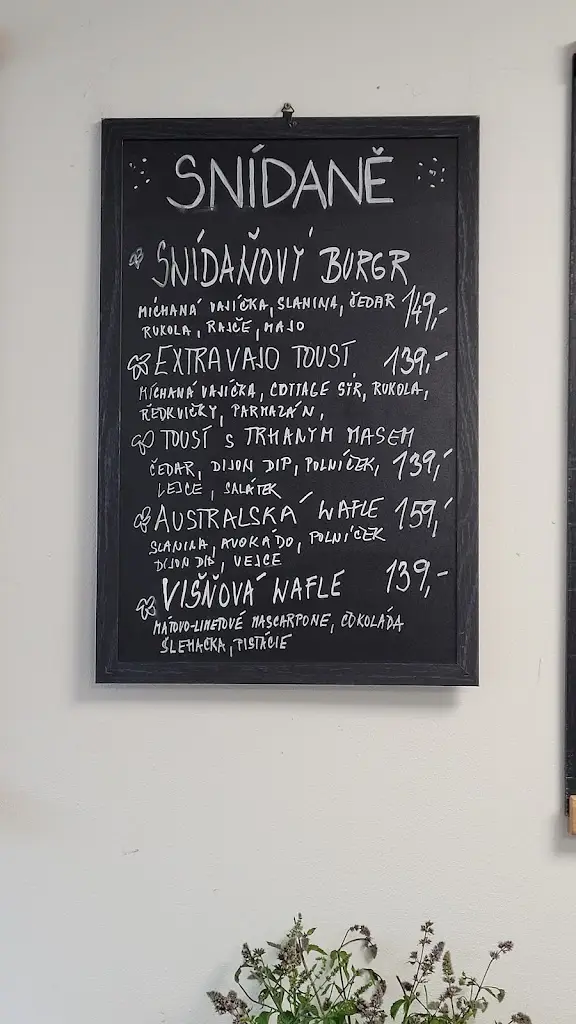 SNÍDANĚ
SNÍDAŇOVÝ BURGR
MÍCHANÁ VAJÍČKA, SLANINA, ČEDAR 149,-
RUKOLA, RAJČE, MAJO
EXTRAVAJO TOUST 139,-
MÍCHANÁ VAJÍČKA, COTTAGE SÝR, RUKOLA,
ŘEDKVIČKY, PARMAZÁN,
TOUST S TRHANÝM MASEM
ČEDAR, DIJON DIP, POLNÍČEK, 139,-
VEJCE, SALÁTEK
AUSTRALSKÁ WAFLE 159,-
SLANINA, AVOKÁDO, POLNÍČEK
DIJON DIP, VEJCE
VIŠŇOVÁ WAFLE 139,-
MÁTOVO-LIMETOVÉ MASCARPONE, ČOKOLÁDA
ŠLEHAČKA, PISTÁCIE